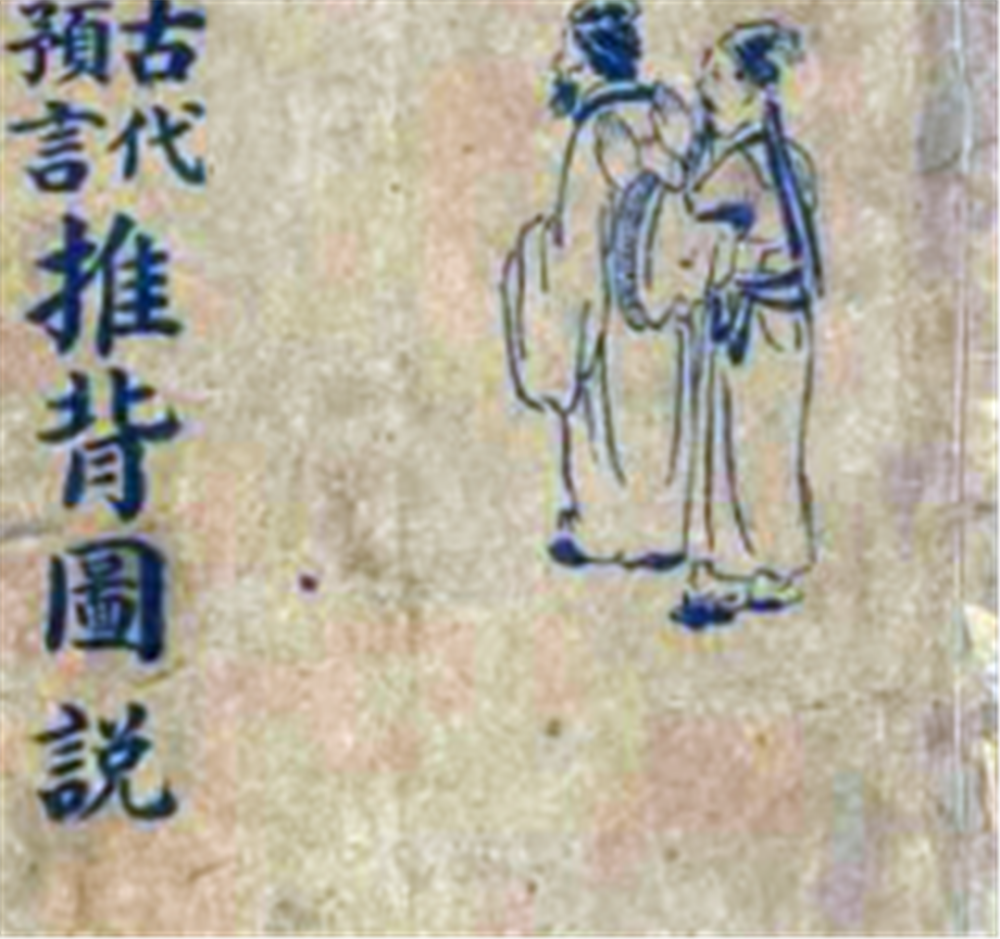 古代
預言
推背圖説